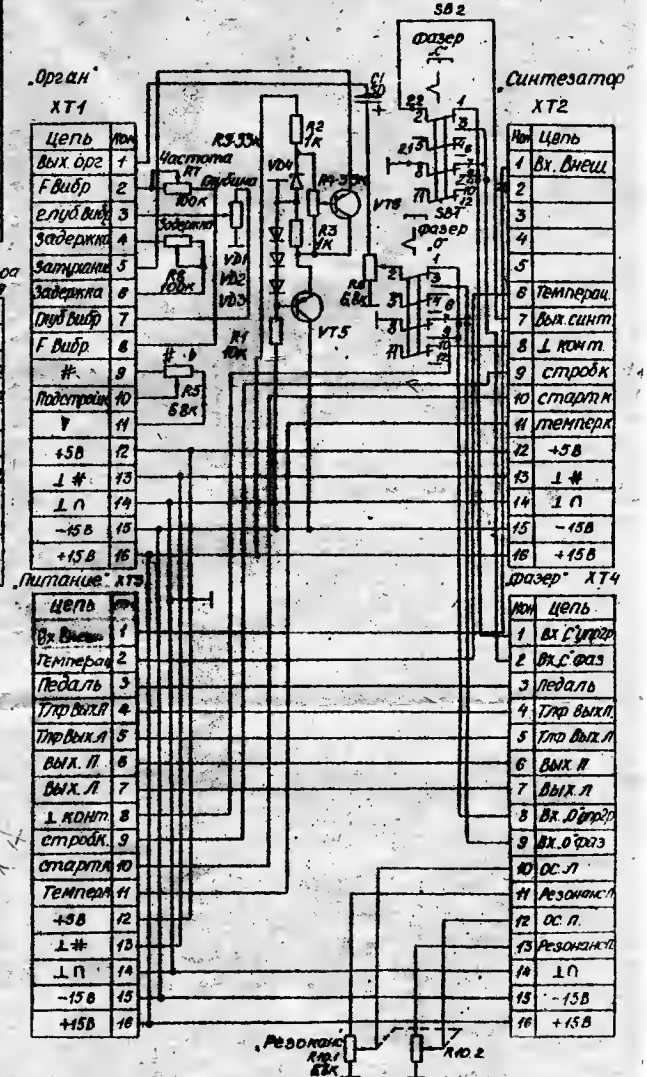 SB2
фазер
"С"
„Орган"
XT1
Цепь Кон
Вых. орг 1
F Вибр 2
Глуб Вибр 3
Задержка 4
Затухание 5
Задержка 6
Глуб Вибр 7
F Вибр. 8
# 9
Подстройк 10
11
+5В 12
⊥ # 13
⊥ П 14
-15В 15
+15В 16
Частота
R7
100к
Глубина
R9-33к
Задержка
R8
100к
R5
6.8к
C1
R2
1к
VD4
R3
1к
VT6
VD1
VD2
VD3
R1
10к
VT5
R6
6.8к
SB1
фазер
"О"
Синтезатор
XT2
Кон Цепь
1 Вх. Внеш
2
3
4
5
6 Темперац.
7 Вых. синт
8 ⊥ конт.
9 стробк
10 старт к
11 темперк
12 +5В
13 ⊥ #
14 ⊥ П
15 -15В
16 +15В
„Питание" XT3
Цепь
Вх Внеш 1
Темперац 2
Педаль 3
Тлф Вых П 4
Тлф Вых Л 5
Вых. П 6
Вых. Л 7
⊥ конт. 8
стробк. 9
старт к 10
Темперк 11
+5В 12
⊥ # 13
⊥ П 14
-15В 15
+15В 16
„Фазер" XT4
Кон Цепь
1 Вх „С" упр
2 Вх „С" фаз
3 Педаль
4 Тлф Вых П.
5 Тлф Вых Л
6 Вых П
7 Вых. Л
8 Вх. „О" упр
9 Вх. „О" фаз
10 ОС. Л
11 Резонанс Л
12 ОС. П.
13 Резонанс П
14 ⊥ П
15 -15В
16 +15В
„Резонанс
R10.1
6.8к
R10.2